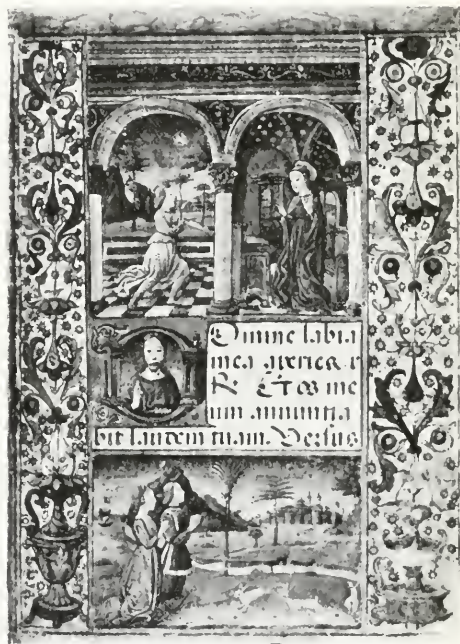 Omine labia
mea aperies &
R. Et os me
um annuntia
bit laudem tuam. Versus